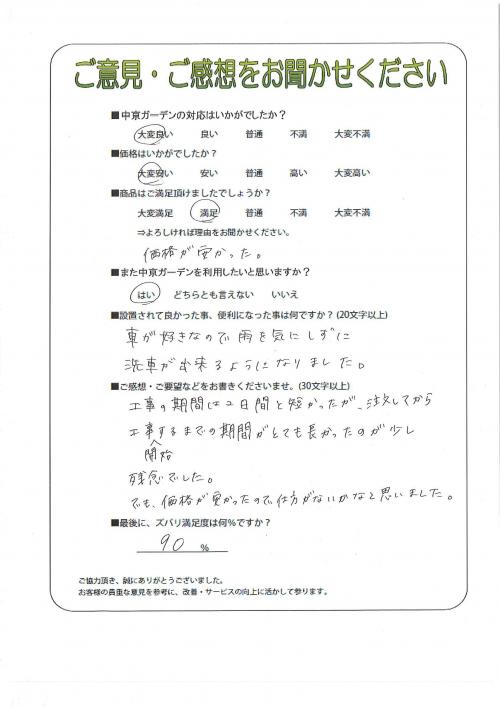 ご意見・ご感想をお聞かせください
■中京ガーデンの対応はいかがでしたか？
大変良い 良い 普通 不満 大変不満
■価格はいかがでしたか？
大変安い 安い 普通 高い 大変高い
■商品はご満足頂けましたでしょうか？
大変満足 満足 普通 不満 大変不満
⇒よろしければ理由をお聞かせください。
価格が安かった。
■また中京ガーデンを利用したいと思いますか？
はい どちらとも言えない いいえ
■設置されて良かった事、便利になった事は何ですか？(20文字以上)
車が好きなので雨を気にしずに
洗車が出来るようになりました。
■ご感想・ご要望などをお書きくださいませ。(30文字以上)
工事の期間は2日間と短かったが、注文してから
工事するまでの期間がとても長かったのが少し
開始
残念でした。
でも、価格が安かったので仕方がないかなと思いました。
■最後に、ズバリ満足度は何%ですか？
90 %
ご協力頂き、誠にありがとうございました。
お客様の貴重な意見を参考に、改善・サービスの向上に活かして参ります。